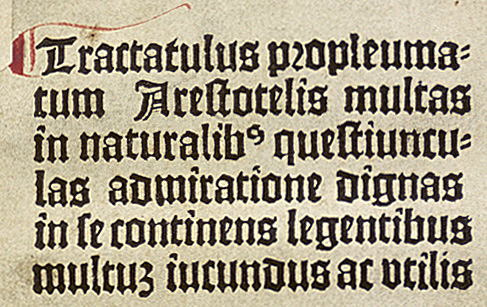 Tractatulus propleuma⸗
tum Arestotelis multas
in naturalibꝰ questiuncu⸗
las admiratione dignas
in se continens legentibus
multuz iucundus ac vtilis